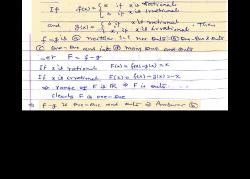 If f(x) = { x if x is rational
0 if x is irrational
and g(x) = { 0 if x is rational
x, if x is irrational. Then
f-g is ⓐ neither 1-1 nor onto ⓑ one-one & onto
ⓒ one-one and into ⓓ many one and onto
Let F = f-g
If x is rational F(x) = f(x)-g(x) = x
If x is irrational F(x) = f(x)-g(x) = -x
⇒ range of F is R ⇒ F is onto.
clearly F is one-one
⇒ f-g is one-one and onto ⇒ Answer ⓑ